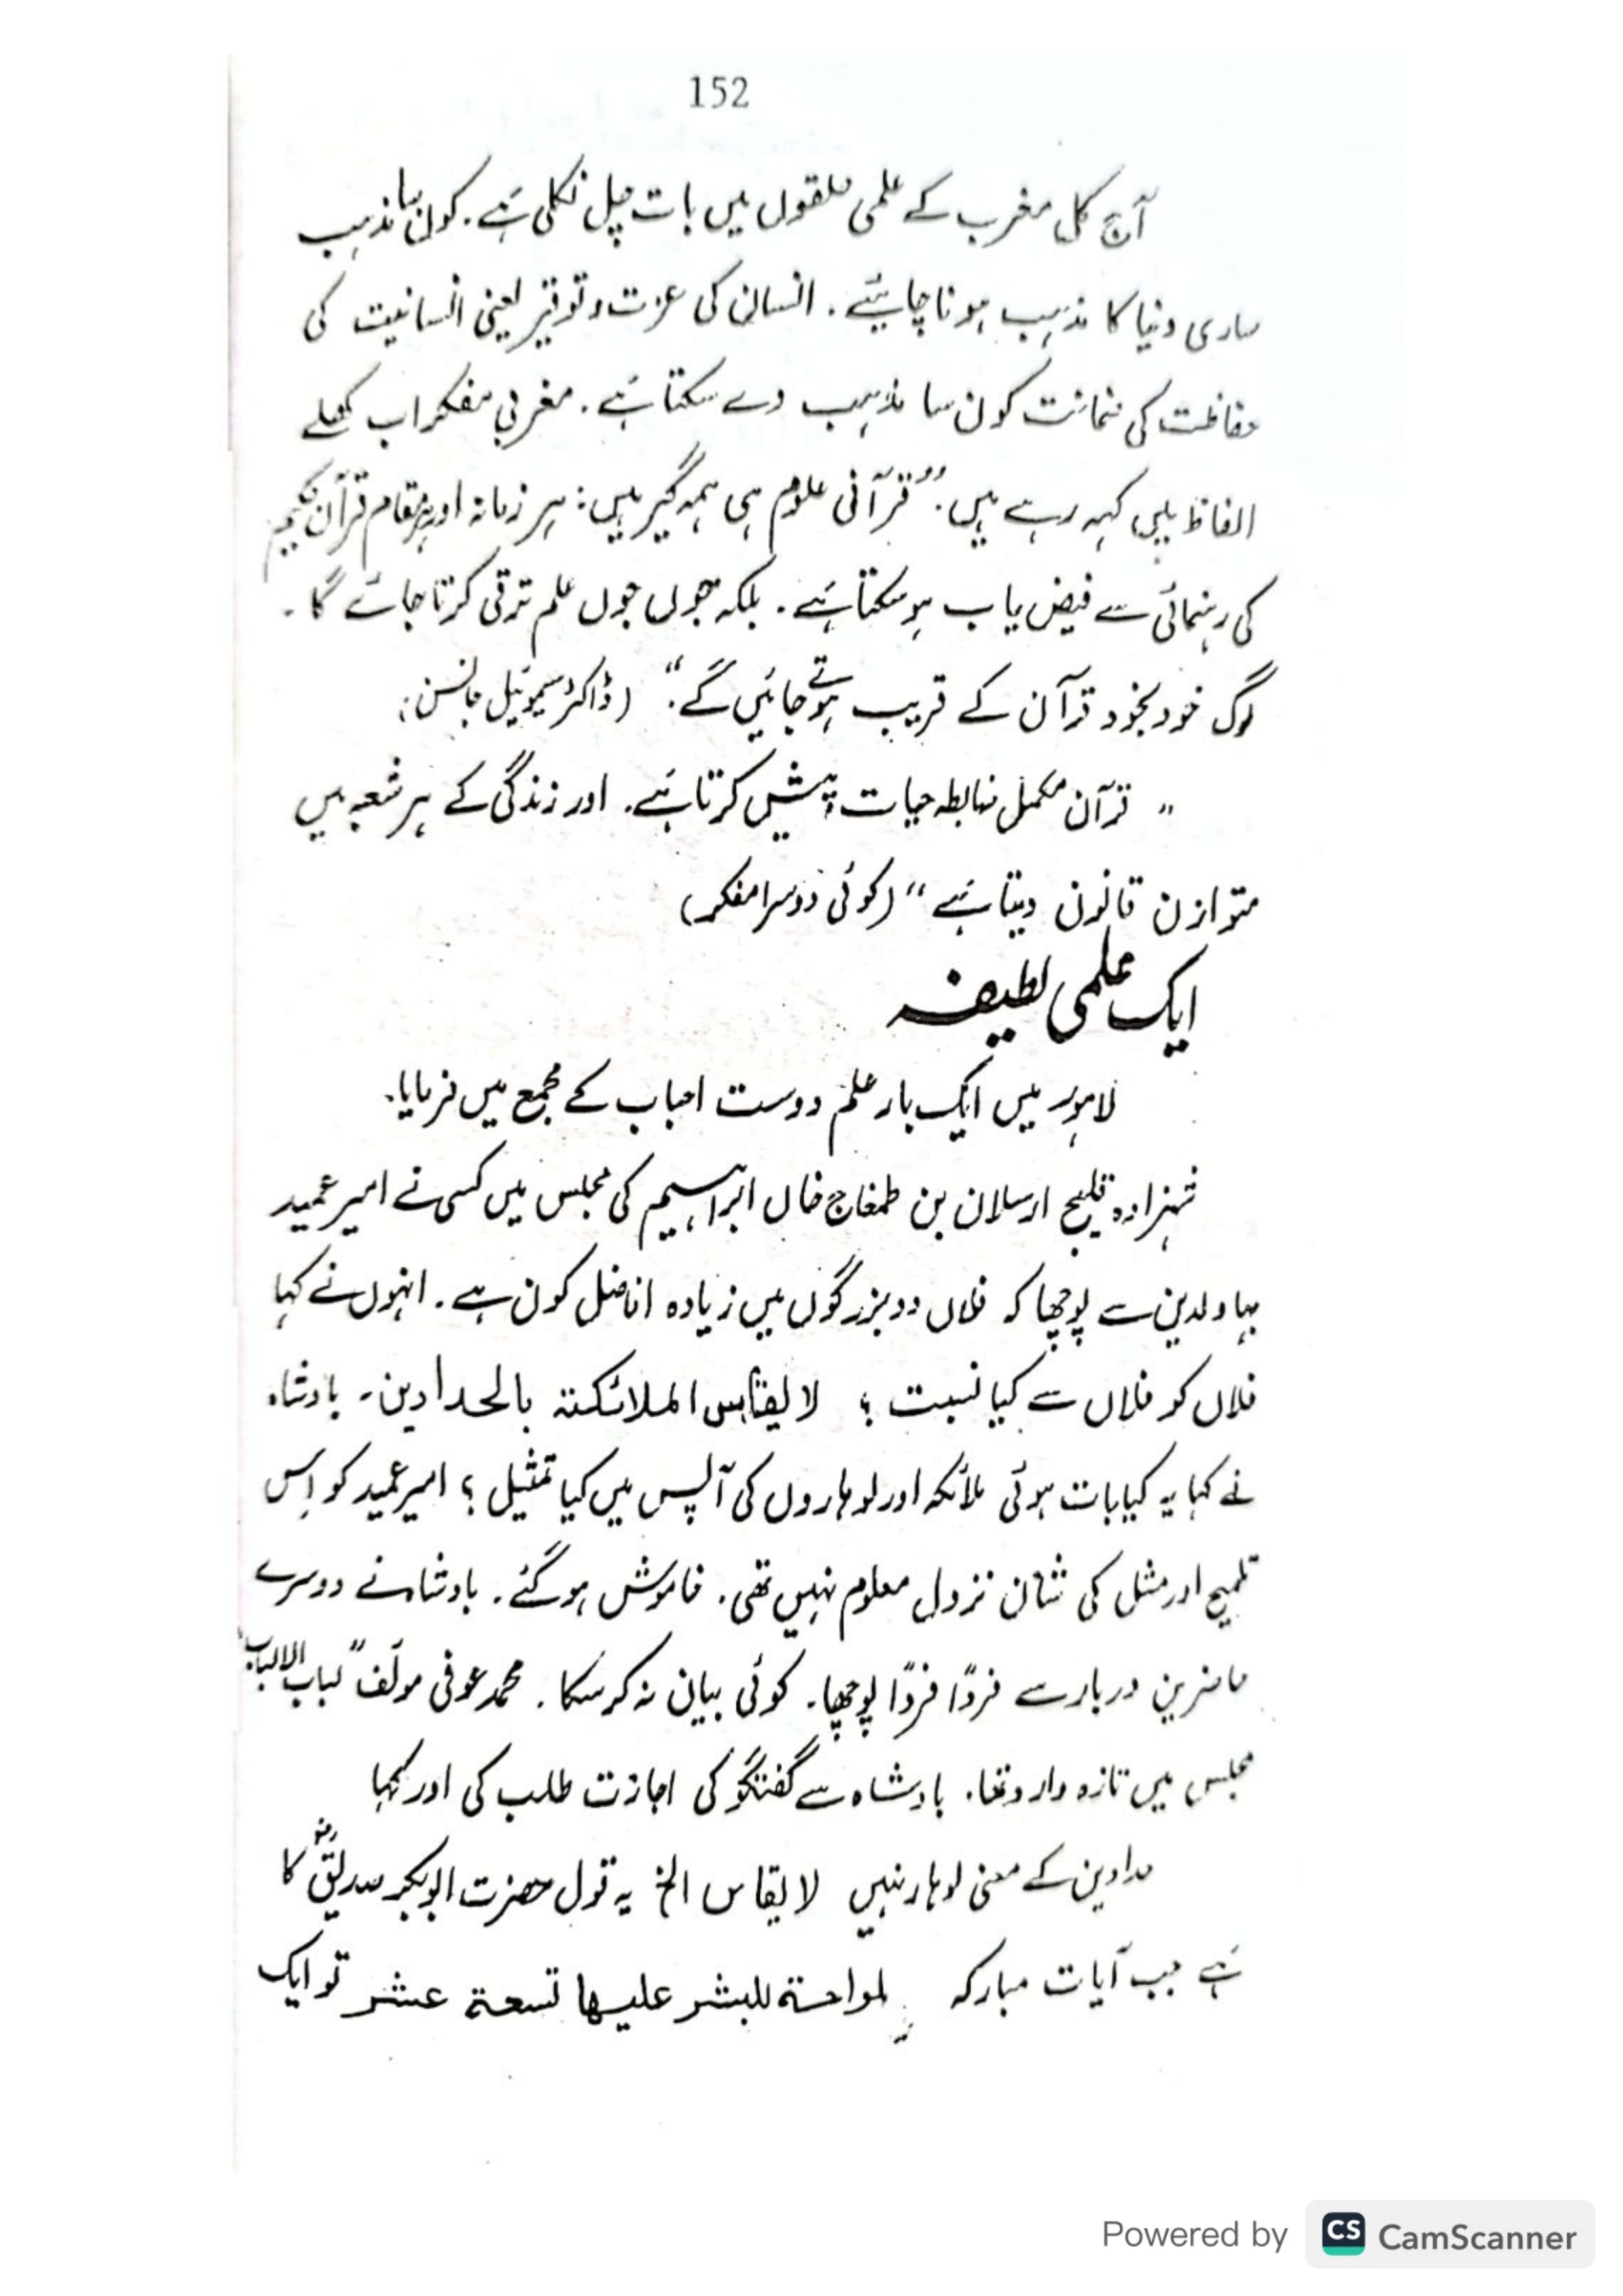 152
آج کل مغرب کے علمی حلقوں میں بات چل نکلی ہَے. کون سا مذہب
ساری دنیا کا مذہب ہونا چاہیئے. انسان کی عزت و توقیر یعنی انسانیت کی
حفاظت کی ضمانت کون سا مذہب دے سکتا ہَے. مغربی مفکر اب کھلے
الفاظ میں کہہ رہے ہیں. ”قرآنی علوم ہی ہمہ گیر ہیں: ہر زمانہ اور ہر مقام قرآن حکیم
کی رہنمائی سے فیض یاب ہو سکتا ہَے. بلکہ جوں جوں علم ترقی کرتا جائے گا.
لوگ خود بخود قرآن کے قریب ہوتے جائیں گے.“ (ڈاکٹر سیموئیل جانسن)
” قرآن مکمل ضابطہ حیات پیش کرتا ہَے. اور زندگی کے ہر شعبہ میں
متوازن قانون دیتا ہَے“ (کوئی دوسرا مفکر)
ایک علمی لطیفہ
لاہور میں ایک بار علم دوست احباب کے مجمع میں فرمایا.
شہزادہ قلیچ ارسلان بن طمغاج خاں ابراہیم کی مجلس میں کسی نے امیر عمید
بہاولدین سے پوچھا کہ فلاں دو بزرگوں میں زیادہ افاضل کون ہے. انہوں نے کہا
فلاں کو فلاں سے کیا نسبت ؟ لا یقابس الملائکتہ بالحدادین۔ بادشاہ
نے کہا یہ کیا بات ہوئی ملائکہ اور لوہاروں کی آپس میں کیا تمثیل ؟ امیر عمید کو اِس
تلمیح اور مثل کی شان نزول معلوم نہیں تھی. خاموش ہو گئے. بادشاہ نے دوسرے
حاضرین دربار سے فرداً فرداً پوچھا. کوئی بیان نہ کر سکا. محمد عوفی مولف ”لباب الالباب“
مجلس میں تازہ وارد تھا. بادشاہ سے گفتگو کی اجازت طلب کی اور کہا
حدادین کے معنی لوہار نہیں لا یقاس الخ یہ قول حضرت ابوبکر صدیقؓ کا
ہَے جب آیات مبارکہ لواحة للبشر علیها تسعة عشر تو ایک
Powered by CS CamScanner